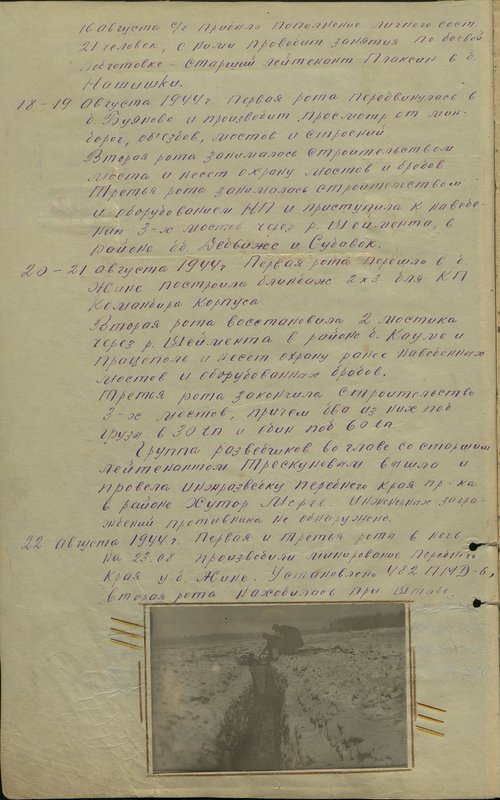 16 августа с/г прибыло пополнение личного сост.
21 человек, с ними проводит занятия по боевой
подготовке – старший лейтенант Плаксин в д.
Нашишки.
18–19 Августа 1944 г. Первая рота передвинулась в
д. Буяново и производит просмотр от мин-
дорог, объездов, мостов и строений.
Вторая рота занималась строительством
моста и несет охрану мостов и бродов.
Третья рота занималась строительством
и оборудованием НП и приступила к наведе-
нию 3-х мостов через р. в
районе дд. и Субавок.
20–21 августа 1944 г. Первая рота перешла в д.
Жине построила блиндаж 2х3 для КП
Командира Корпуса
Вторая рота восстановила 2 мостика
через р. в районе д. Кауме и
и несет охрану ранее наведенных
мостов и оборудованных бродов.
Третья рота закончила строительство
3-х мостов, причем два из них под
грузы в 30 tn и один под 60 tn.
Группа разведчиков во главе со старшим
лейтенантом Трескуновым вышла и
провела инжразведку переднего края пр-ка
в районе Хутор Мерге. Инженерных заграж-
дений противника не обнаружено.
22 Августа 1944 г. Первая и третья роты в ночь
на 23.08 производили минирование переднего
края у д. Жине. Установлено 482 ПМД-6,
вторая рота находилась при штабе.